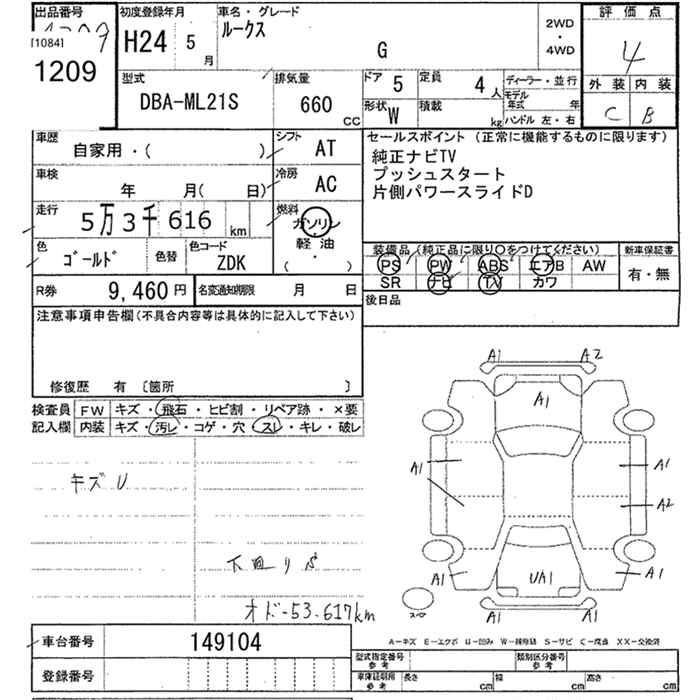 出品番号
[1084]
1209
初度登録年月
H24 5
月
車名・グレード
ルークス
G
2WD
・
4WD
評価点
4
外装 内装
C B
型式
DBA-ML21S
排気量
660
CC
ドア 5
定員 4
人
形状 W
積載
kg
ディーラー・並行
モデル
年式 年
ハンドル 左・右
車歴
自家用・( )
シフト
AT
車検
年 月( 日)
冷房
AC
走行
5万3千616 km
燃料
ガソリン
軽油
( ・ )
色
ゴールド
色替
色コード
ZDK
R券 9,460円
名変通知期限 月 日
セールスポイント (正常に機能するものに限ります)
純正ナビTV
プッシュスタート
片側パワースライドD
装備品(純正品に限り○をつけてください)
PS PW ABS エアB AW
SR ナビ TV カワ
新車保証書
有・無
後日品
注意事項申告欄(不具合内容等は具体的に記入して下さい)
修復歴 有 〔箇所 〕
検査員 FW キズ・飛石・ヒビ割・リペア跡・×要
記入欄 内装 キズ・汚レ・コゲ・穴・スレ・キレ・破レ
キズU
下廻りS
オドー53.617km
A1 A2
A1
A1 A1
A2
A1 UA1 A1
スペア
A1 A1
A－キズ E－エクボ U－凹み W－補修跡 S－サビ C－腐食 XX－交換済
車台番号 149104
登録番号
型式指定番号
参考
類別区分番号
参考
車庫証明用
参考
長さ cm
幅 cm
高さ cm